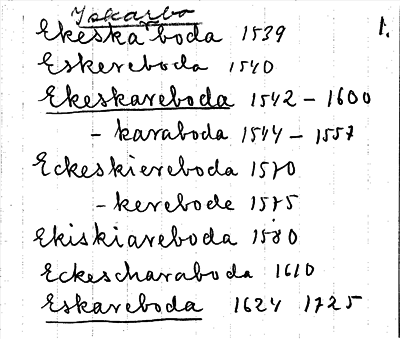 Iskarbo
Ekeskaboda 1539 1.
Eskereboda 1540
Ekeskareboda 1542 - 1600
- karaboda 1544 - 1557
Eckeskiereboda 1570
- kerebode 1575
Ekiskiareboda 1580
Eckescharaboda 1610
Eskareboda 1624 1725